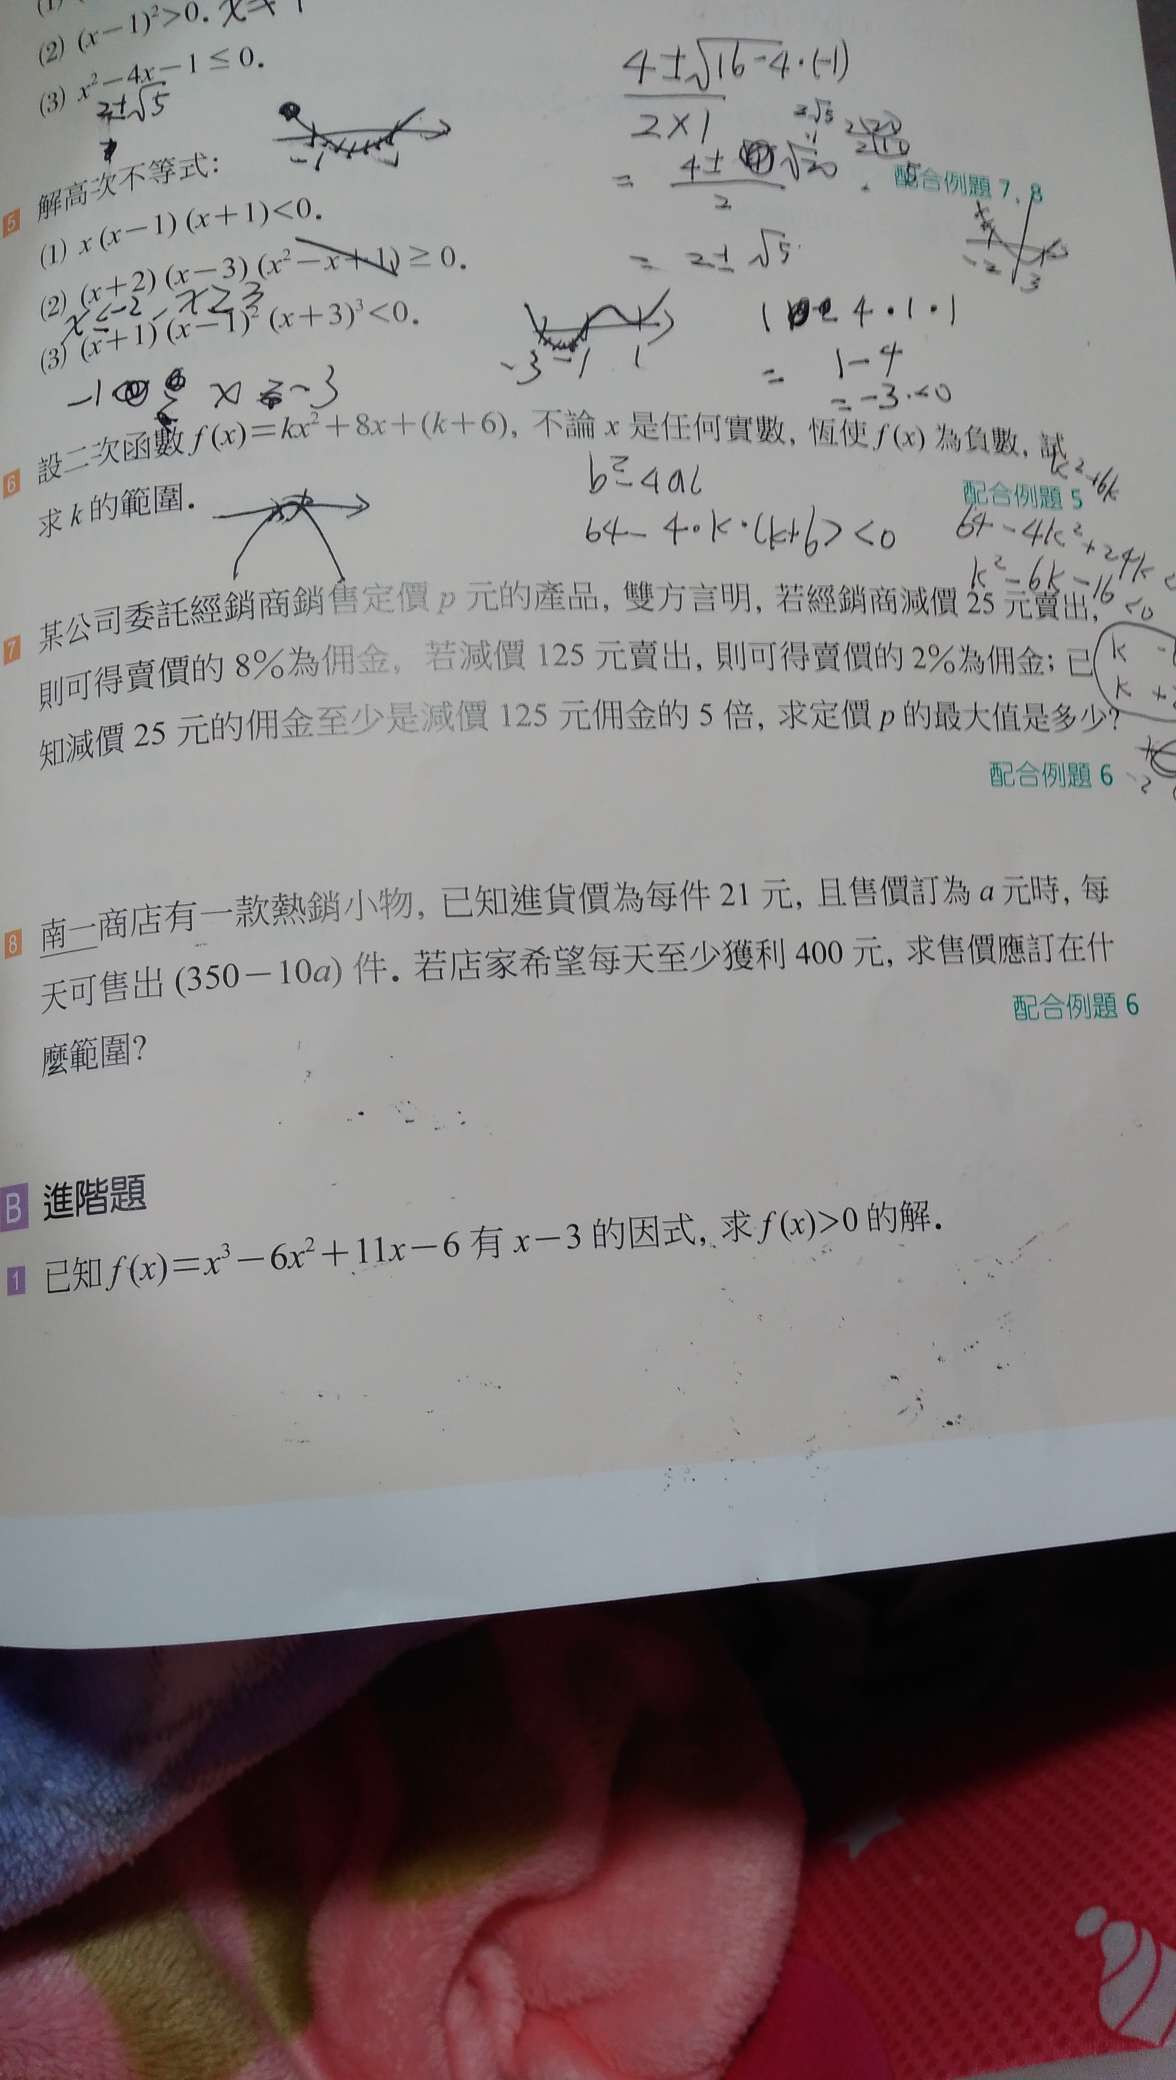 (2) (x−1)²>0.
(3) x²−4x−1≤0.
2±√5
4±√16−4·(−1)
2×1
= 4± √20
2
= 2±√5
5 解高次不等式：
配合例題 7、8
(1) x(x−1)(x+1)<0.
(2) (x+2)(x−3)(x²−x+1)≥0.
x≤−2 x≥3
(3) (x+1)(x−1)²(x+3)³<0.
−3 −1 1
−2 3
4·1·1
= 1−4
= −3<0
6 設二次函數 f(x)=kx²+8x+(k+6), 不論 x 是任何實數, 恆使 f(x) 為負數, 試
求 k 的範圍.
配合例題 5
k²+6k
64−4·k·(k+6)<0
64−4k²+24k
k²−6k−16<0
7 某公司委託經銷商銷售定價 p 元的產品, 雙方言明, 若經銷商減價 25 元賣出,
則可得賣價的 8%為佣金, 若減價 125 元賣出, 則可得賣價的 2%為佣金; 已
知減價 25 元的佣金至少是減價 125 元佣金的 5 倍, 求定價 p 的最大值是多少?
配合例題 6
8 南一商店有一款熱銷小物, 已知進貨價為每件 21 元, 且售價訂為 a 元時, 每
天可售出 (350−10a) 件. 若店家希望每天至少獲利 400 元, 求售價應訂在什
麼範圍?
配合例題 6
B 進階題
1 已知 f(x)=x³−6x²+11x−6 有 x−3 的因式, 求 f(x)>0 的解.